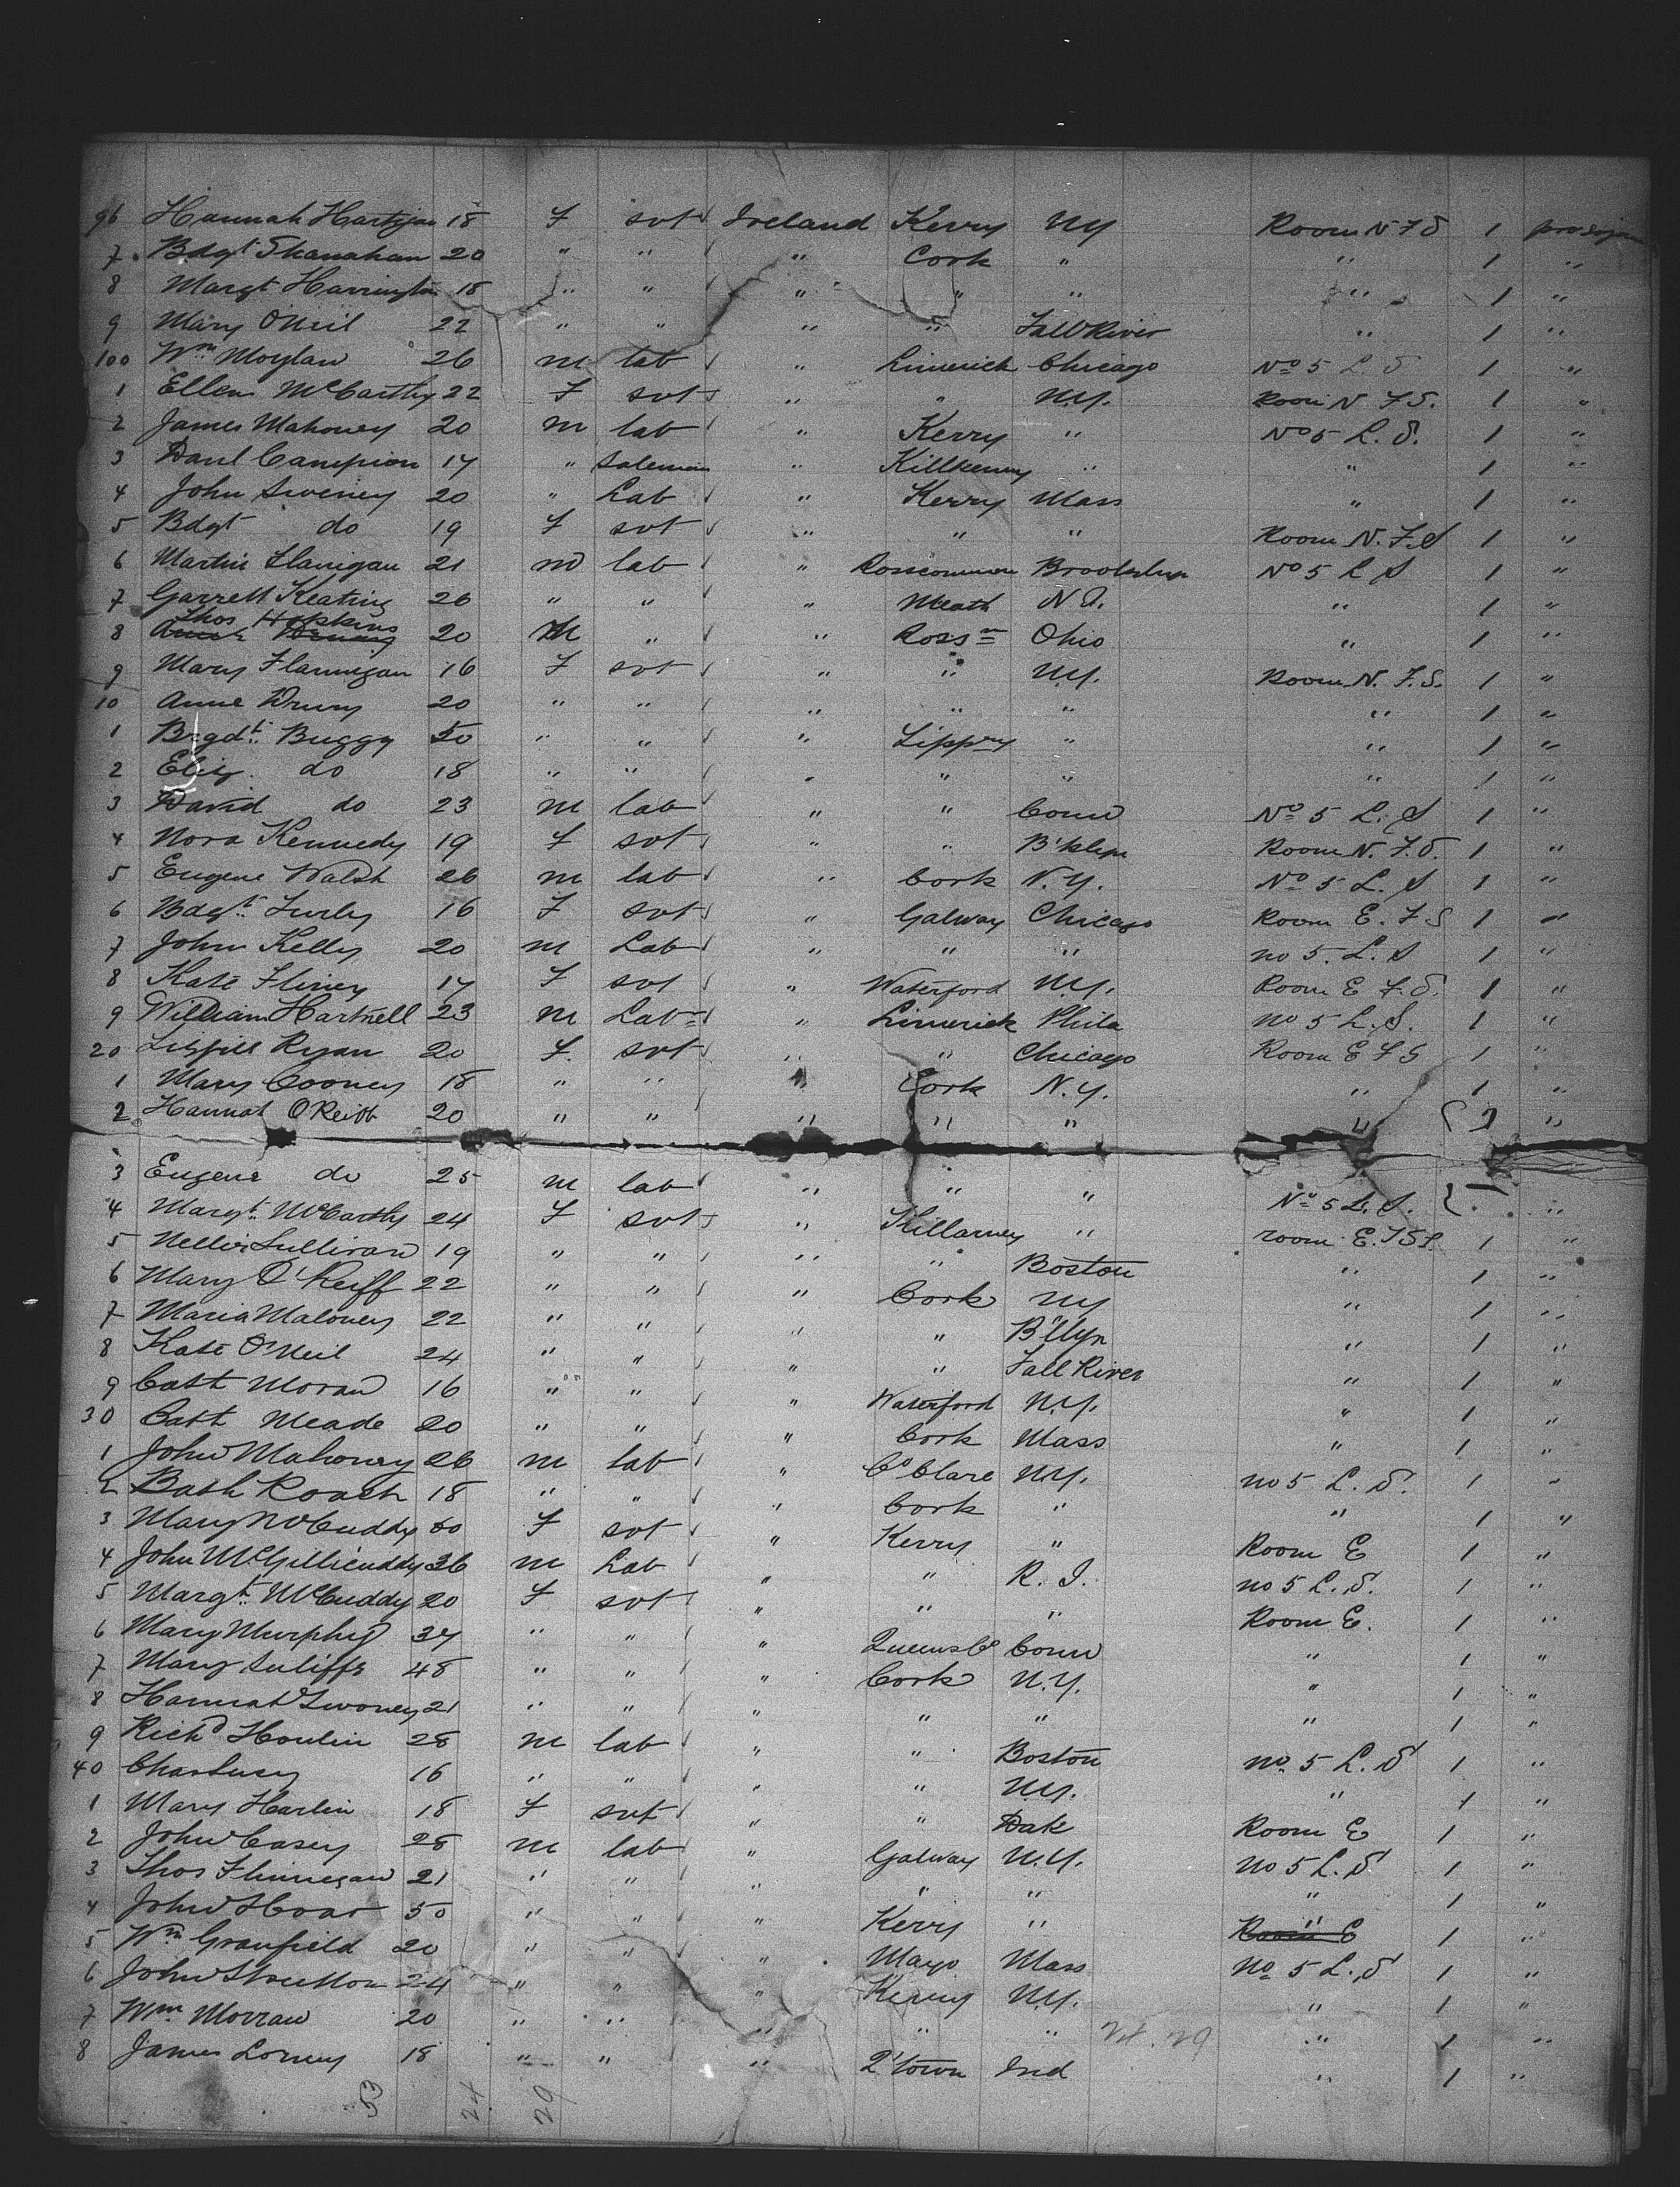 96 Hannah Hartigan 18 F svt Ireland Kerry NY Room N F S 1
7 Bdgt Shanahan 20 " " " Cork " " 1 "
8 Margt Harrington 18 " " " " " " 1 "
9 Mary ONeil 22 " " " " Fall River " 1 "
100 Wm Moylan 26 m lab " Limerick Chicago No 5 L S 1 "
1 Ellen McCarthy 22 F svt " " N.Y. Room N F S. 1 "
2 James Mahoney 20 m lab " Kerry " No 5 L. S. 1 "
3 Danl Campion 17 " Salesman " Killkenny " " 1 "
4 John Sweney 20 " Lab " Kerry Mass " 1 "
5 Bdgt do 19 F svt " " " Room N. F. S 1 "
6 Martin Flanigan 21 m lab " Roscommon Brooklyn No 5 L S 1 "
7 Garrett Keating 26 " " " Meath N. " 1 "
Thos Hopkins
8 20 M " " Ross Ohio " 1 "
9 Mary Flannigan 16 F svt " " N.Y. Room N. F. S. 1 "
10 Anne Drury 20 " " " " " " 1 "
1 Brgdt Buggy 50 " " " Tippry " " 1 "
2 Eliz. do 18 " " " " " " 1 "
3 David do 23 m lab " " Conn No 5 L. S 1 "
4 Nora Kennedy 19 F svt " " B'klyn Room N. F. S. 1 "
5 Eugene Walsh 26 m lab " Cork N.Y. No 5 L. S 1 "
6 Bdgt Turly 16 F svt " Galway Chicago Room E. F S 1 "
7 John Kelly 20 m Lab " " " no 5. L. S 1 "
8 Kate Fliney 17 F svt " Waterford N.Y. Room E F. S. 1 "
9 William Hartnell 23 m Lab " Limerick Phila no 5 L. S. 1 "
20 Ryan 20 F. svt " " Chicago Room E F S 1 "
1 Mary Cooney 18 " " " Cork N.Y. " 1 "
2 Hannah O'Keiff 20 " " " " " " 1 "
3 Eugene do 25 m lab " " " No 5 L. S. "
4 Margt McCarthy 24 F svt " Killarney " room E. F S 1 "
5 Nellie Sullivan 19 " " " " Boston " 1 "
6 Mary O'Keiff 22 " " " Cork NY " 1 "
7 Maria Maloney 22 " " " " B'klyn " 1 "
8 Kate O'Neil 24 " " " " Fall River " 1 "
9 Cath Moran 16 " " " Waterford N.Y. " 1 "
30 Cath Meade 20 " " " Cork Mass " 1 "
1 John Mahoney 26 m lab " Co Clare N.Y. no 5 L. S. 1 "
2 Roach 18 " " " Cork " " 1 "
3 Mary McCuddy 60 F svt " Kerry " Room E 1 "
4 John McGillicuddy 36 m Lab " " R. I. no 5 L. S. 1 "
5 Margt McCuddy 20 F svt " " " Room E. 1 "
6 Mary Murphy 37 " " " Queens Co Conn " 1 "
7 Mary 48 " " " Cork N.Y. " 1 "
8 Hannah Twoney 21 " " " " " " 1 "
9 Richd Houlin 28 m lab " " Boston no. 5 L. S 1 "
40 Chas Lucy 16 " " " " N.Y. " 1 "
1 Mary Harlin 18 F svt " " Dak Room E 1 "
2 John Casey 28 m lab " Galway N.Y. no 5 L. S 1 "
3 Thos Flinnegan 21 " " " " " " 1 "
4 John Hoar 50 " " " Kerry " " 1 "
5 Wm Granfield 20 " " " Mayo Mass No 5 L. S 1 "
6 John Stretton 24 " " " Kerry N.Y. " 1 "
7 Wm Morran 20 " " " " " 24. 29 " 1 "
8 James Lorney 18 " " " Q'town Ind " 1 "
53 24 29